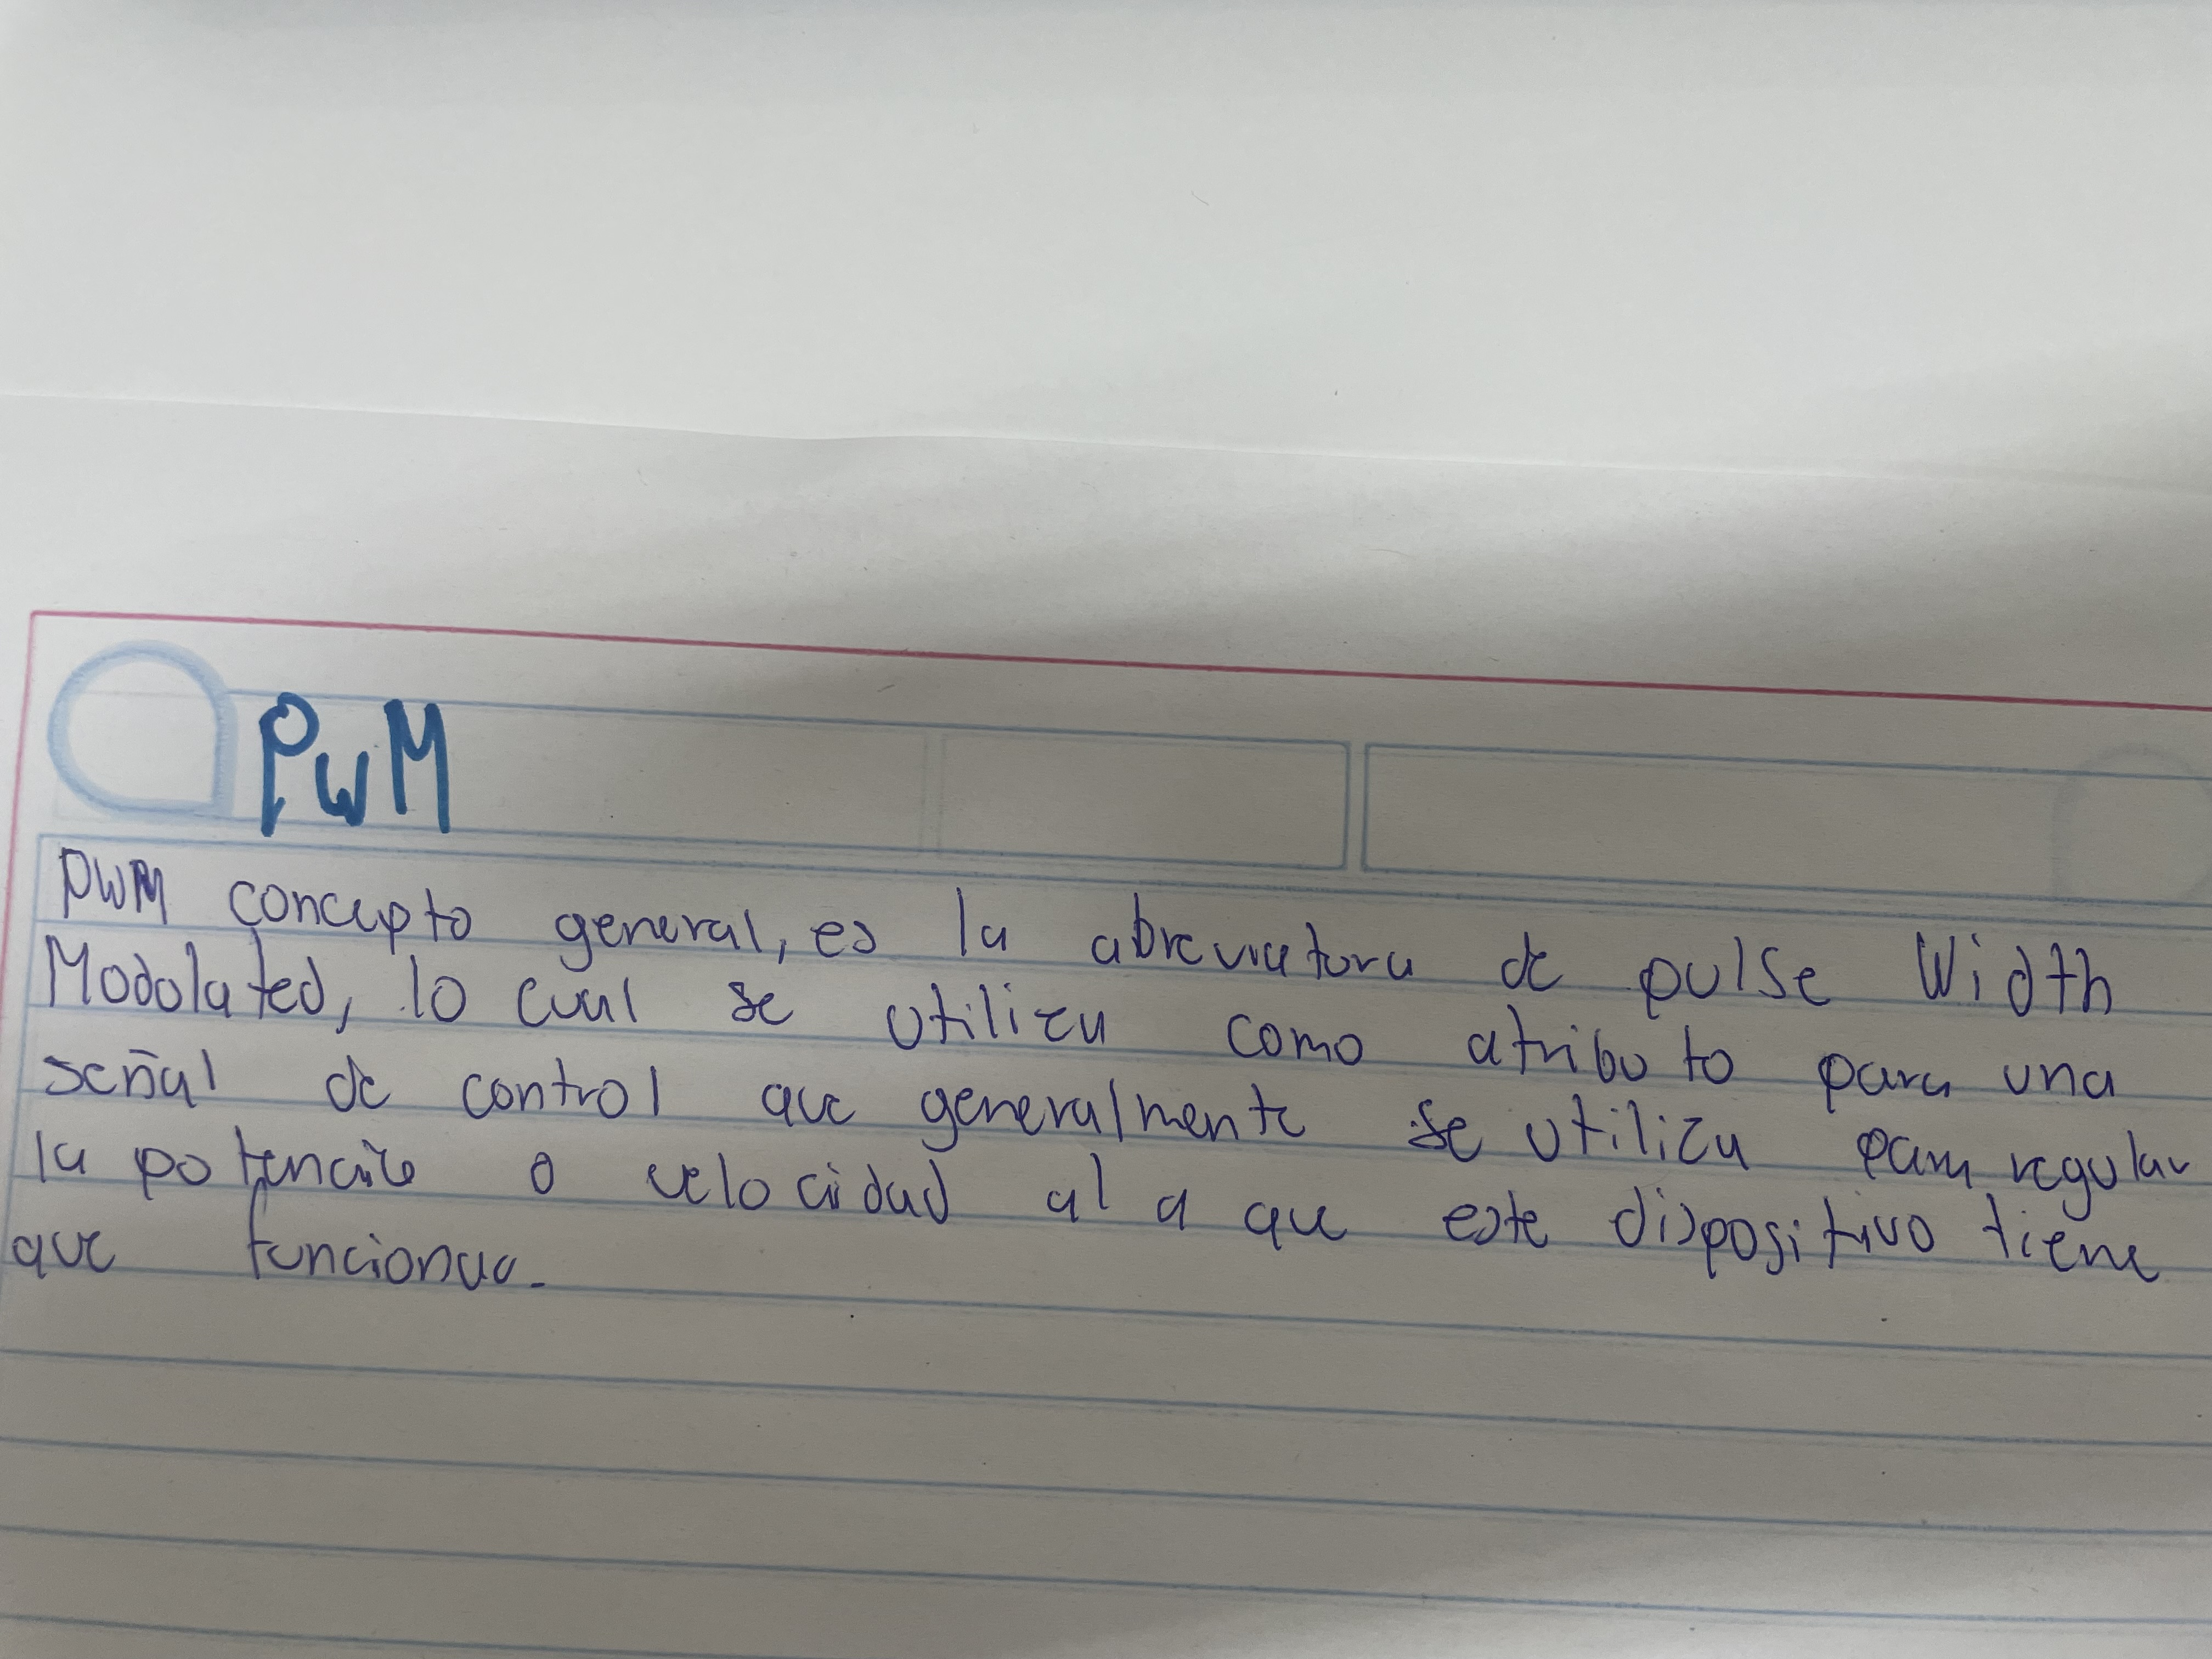 PWM
PWM concepto general, es la abreviatura de pulse Width
Modolated, lo cual se utiliza como atributo para una
señal de control que generalmente se utiliza para regular
la potencia o velocidad al a que este dispositivo tiene
que funcionar.